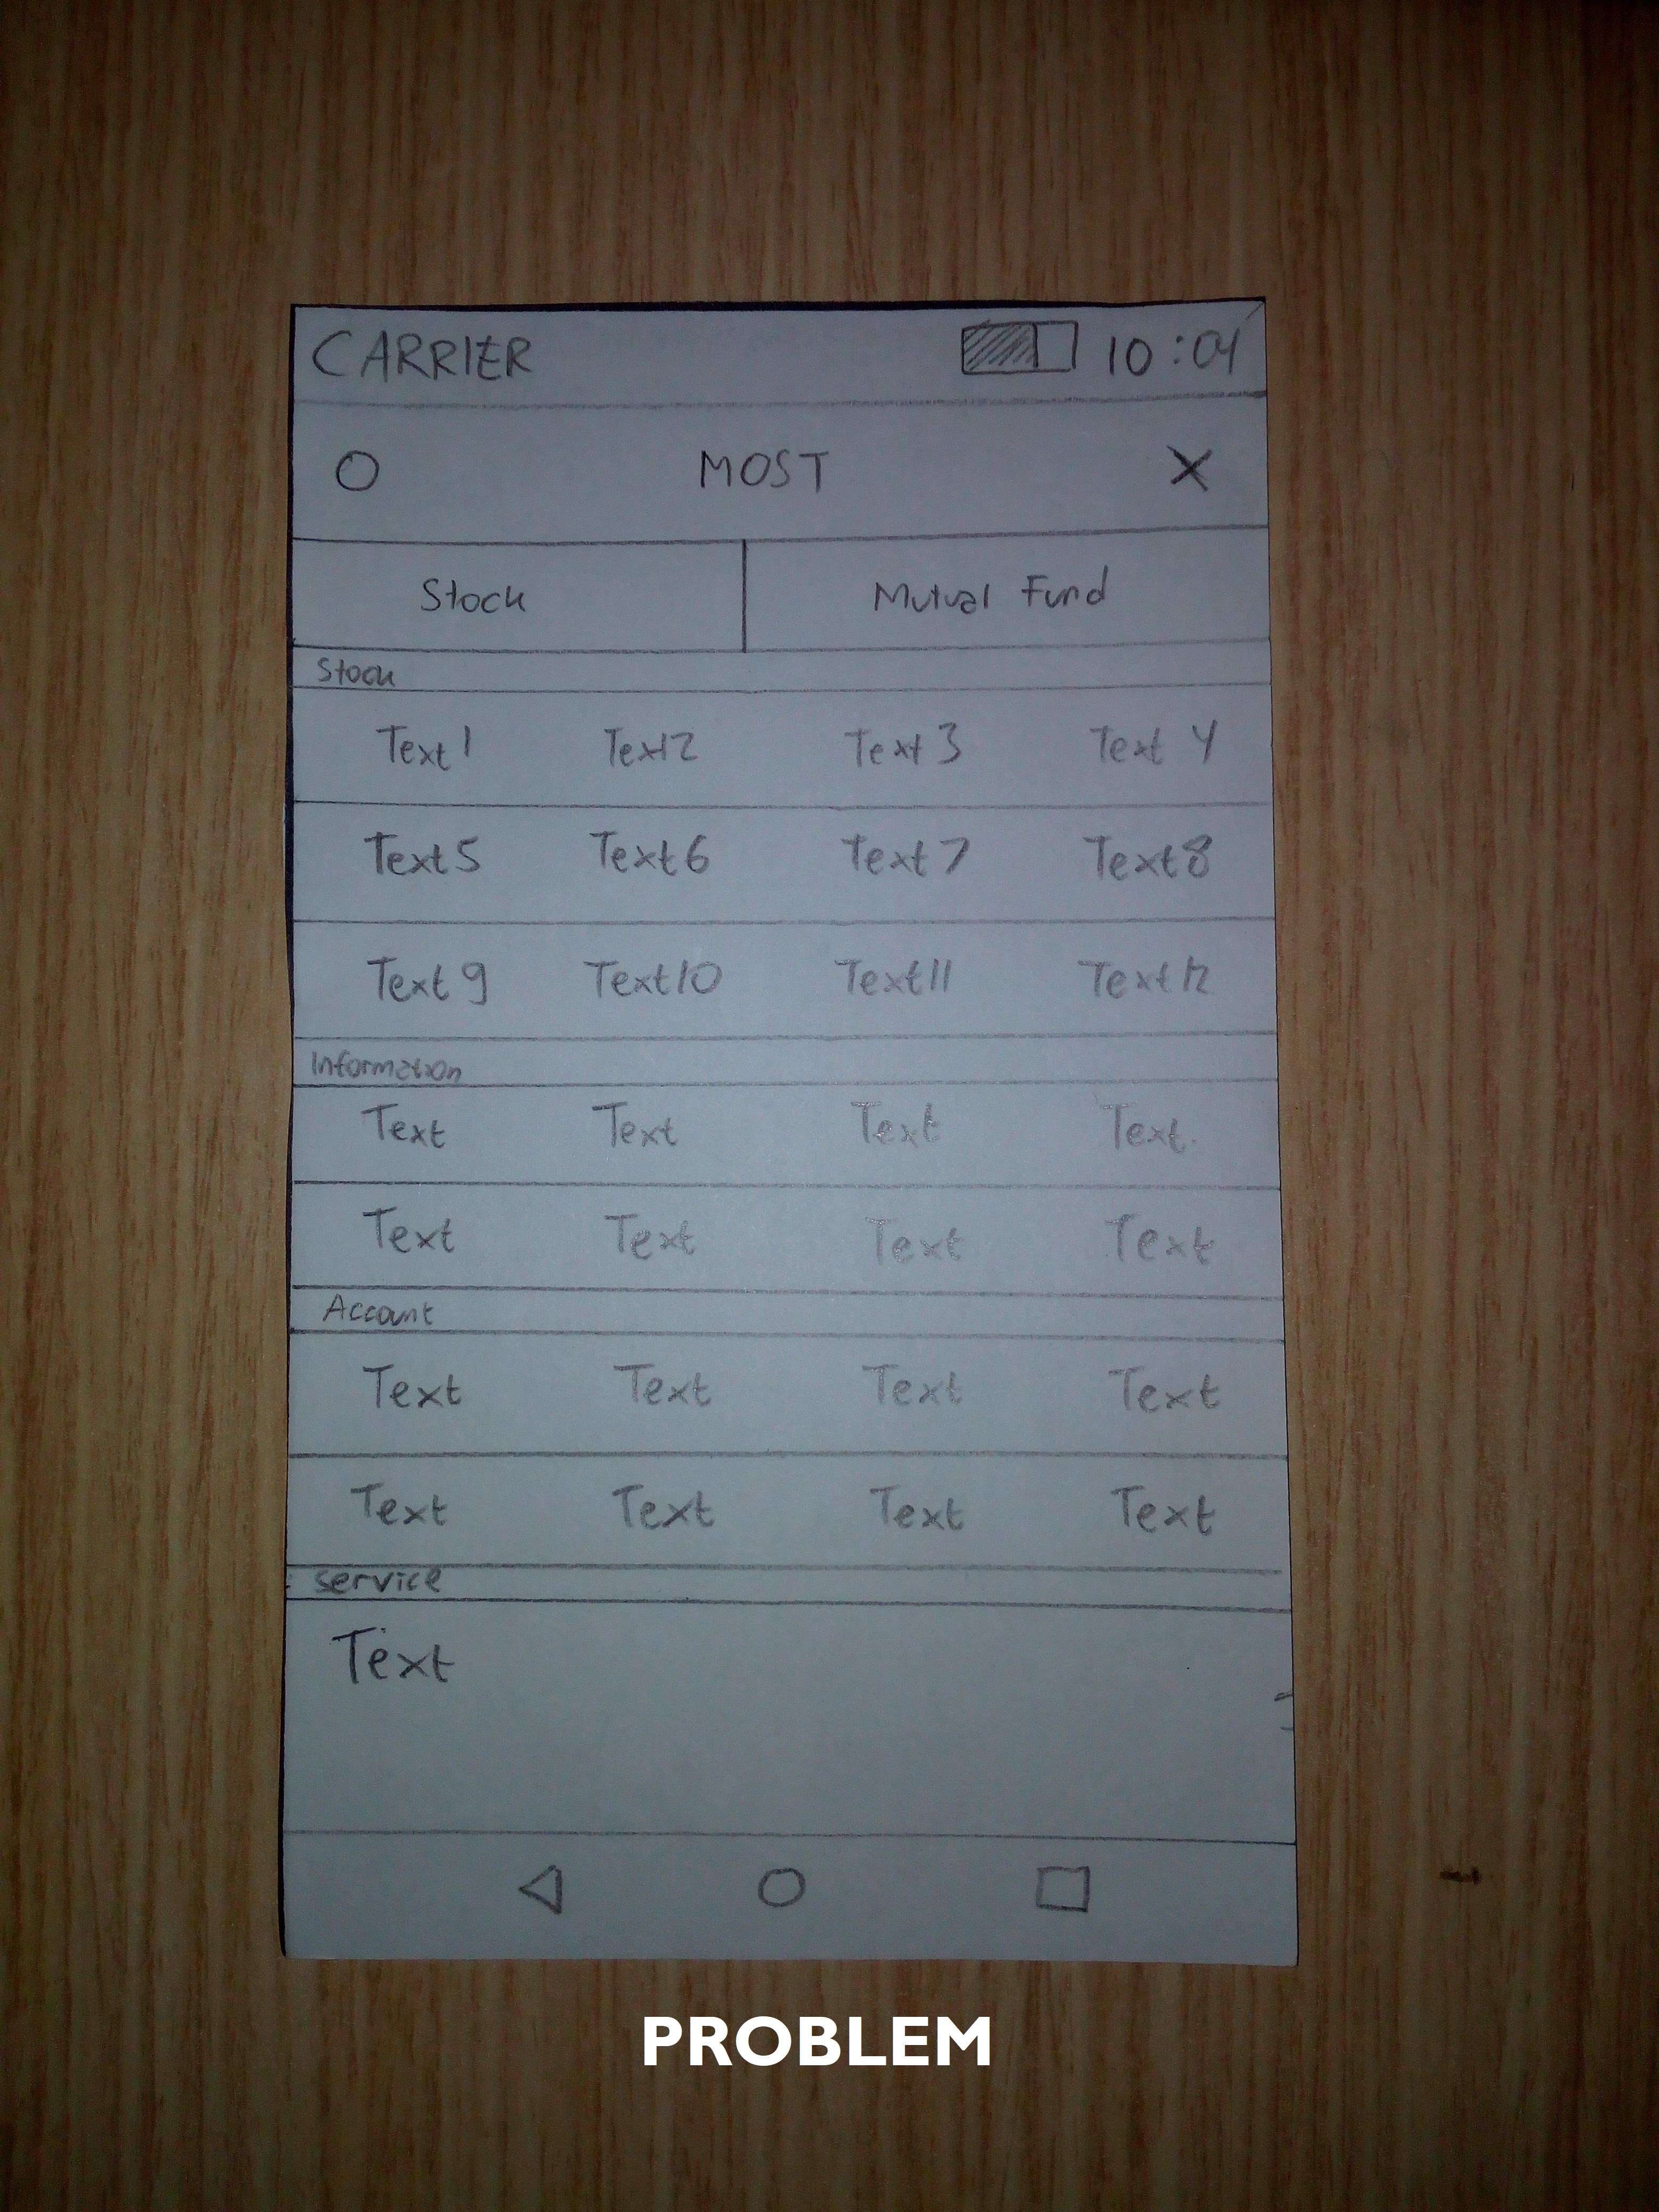 CARRIER 10:04
O MOST X
Stock Mutual Fund
Stock
Text1 Text2 Text3 Text 4
Text5 Text6 Text7 Text8
Text9 Text10 Text11 Text12
Information
Text Text Text Text.
Text Text Text Text
Account
Text Text Text Text
Text Text Text Text
service
Text
PROBLEM